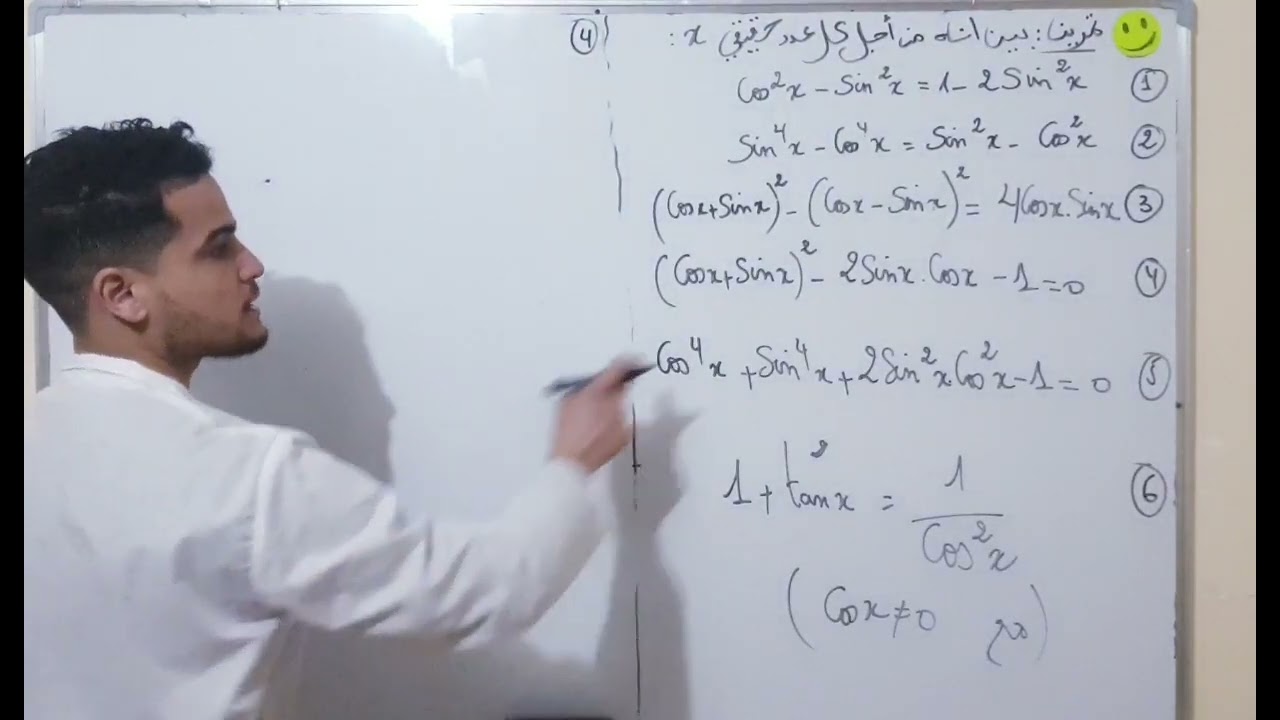 تمرين: بين أنه من أجل كل عدد حقيقي x :
① Cos²x - Sin²x = 1 - 2Sin²x
② Sin⁴x - Cos⁴x = Sin²x - Cos²x
③ (Cosx+Sinx)² - (Cosx-Sinx)² = 4Cosx.Sinx
④ (Cosx+Sinx)² - 2Sinx.Cosx - 1 = 0
⑤ Cos⁴x + Sin⁴x + 2Sin²x.Cos²x - 1 = 0
⑥ 1 + tan²x = 1/Cos²x
(مع Cosx ≠ 0)
④